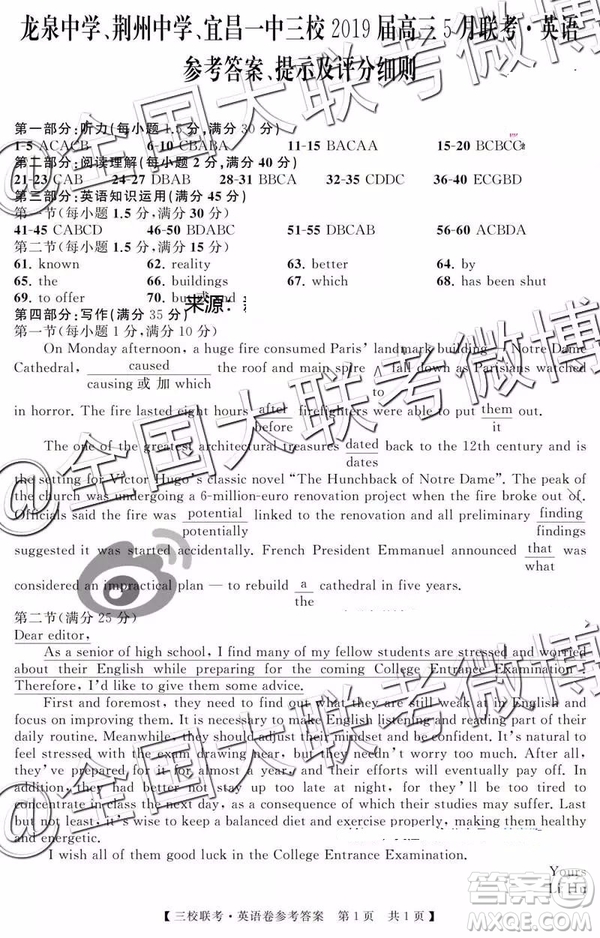 龙泉中学、荆州中学、宜昌一中三校 2019 届高三 5 月联考·英语
参考答案、提示及评分细则
第一部分:听力(每小题 1.5 分,满分 30 分)
1-5 ACACB 6-10 CBABA 11-15 BACAA 15-20 BCBCC
第二部分:阅读理解(每小题 2 分,满分 40 分)
21-23 CAB 24-27 DBAB 28-31 BBCA 32-35 CDDC 36-40 ECGBD
第三部分:英语知识运用(满分 45 分)
第一节(每小题 1.5 分,满分 30 分)
41-45 CABCD 46-50 BDABC 51-55 DBCAB 56-60 ACBDA
第二节(每小题 1.5 分,满分 15 分)
61. known 62. reality 63. better 64. by
65. the 66. buildings 67. which 68. has been shut
69. to offer 70. but 或 and
来源:
第四部分:写作(满分 35 分)
第一节(每小题 1 分,满分 10 分)
On Monday afternoon, a huge fire consumed Paris' landmark building — Notre Dame
Cathedral, caused the roof and main spire ∧ fall down as Parisians watched
causing 或 加 which to
in horror. The fire lasted eight hours after firefighters were able to put them out.
before it
The one of the greatest architectural treasures dated back to the 12th century and is
dates
the setting for Victor Hugo's classic novel "The Hunchback of Notre Dame". The peak of
the church was undergoing a 6-million-euro renovation project when the fire broke out of.
Officials said the fire was potential linked to the renovation and all preliminary finding
potentially findings
suggested it was started accidentally. French President Emmanuel announced that was
what
considered an impractical plan — to rebuild a cathedral in five years.
the
第二节(满分 25 分)
Dear editor,
As a senior of high school, I find many of my fellow students are stressed and worried
about their English while preparing for the coming College Entrance Examination.
Therefore, I'd like to give them some advice.
First and foremost, they need to find out what they are weak at in English and
focus on improving them. It is wise to make English listening and reading part of their
daily routine. Meanwhile, they needn't worry too much. Although they may feel
stressed with the exam drawing near, but they needn't worry too much. After all,
they've prepared for it for long and can afford it if they put their efforts in. In
addition, they had better not stay up too late at night, for they'll be too tired to
concentrate in class the next day, as a consequence of which their studies may suffer.
Last but not least, it's wise to keep a balanced diet and exercise properly, making them healthy
and energetic.
I wish all of them good luck in the College Entrance Examination.
Yours
Li Hu
【三校联考·英语卷参考答案 第 1 页 共 1 页】
@全国大联考微博
@全国大联考微博
@全国大联考微博
答案圈